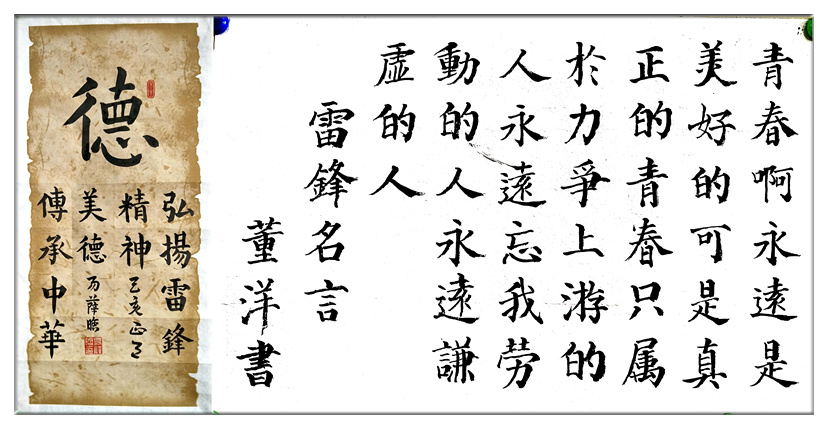 青春啊永遠是
美好的可是真
正的青春只属
於力爭上游的
人永遠忘我劳
動的人永遠謙
虛的人
雷鋒名言
董洋書
德
弘揚雷鋒
精神 己亥正月
美德
傳承中華